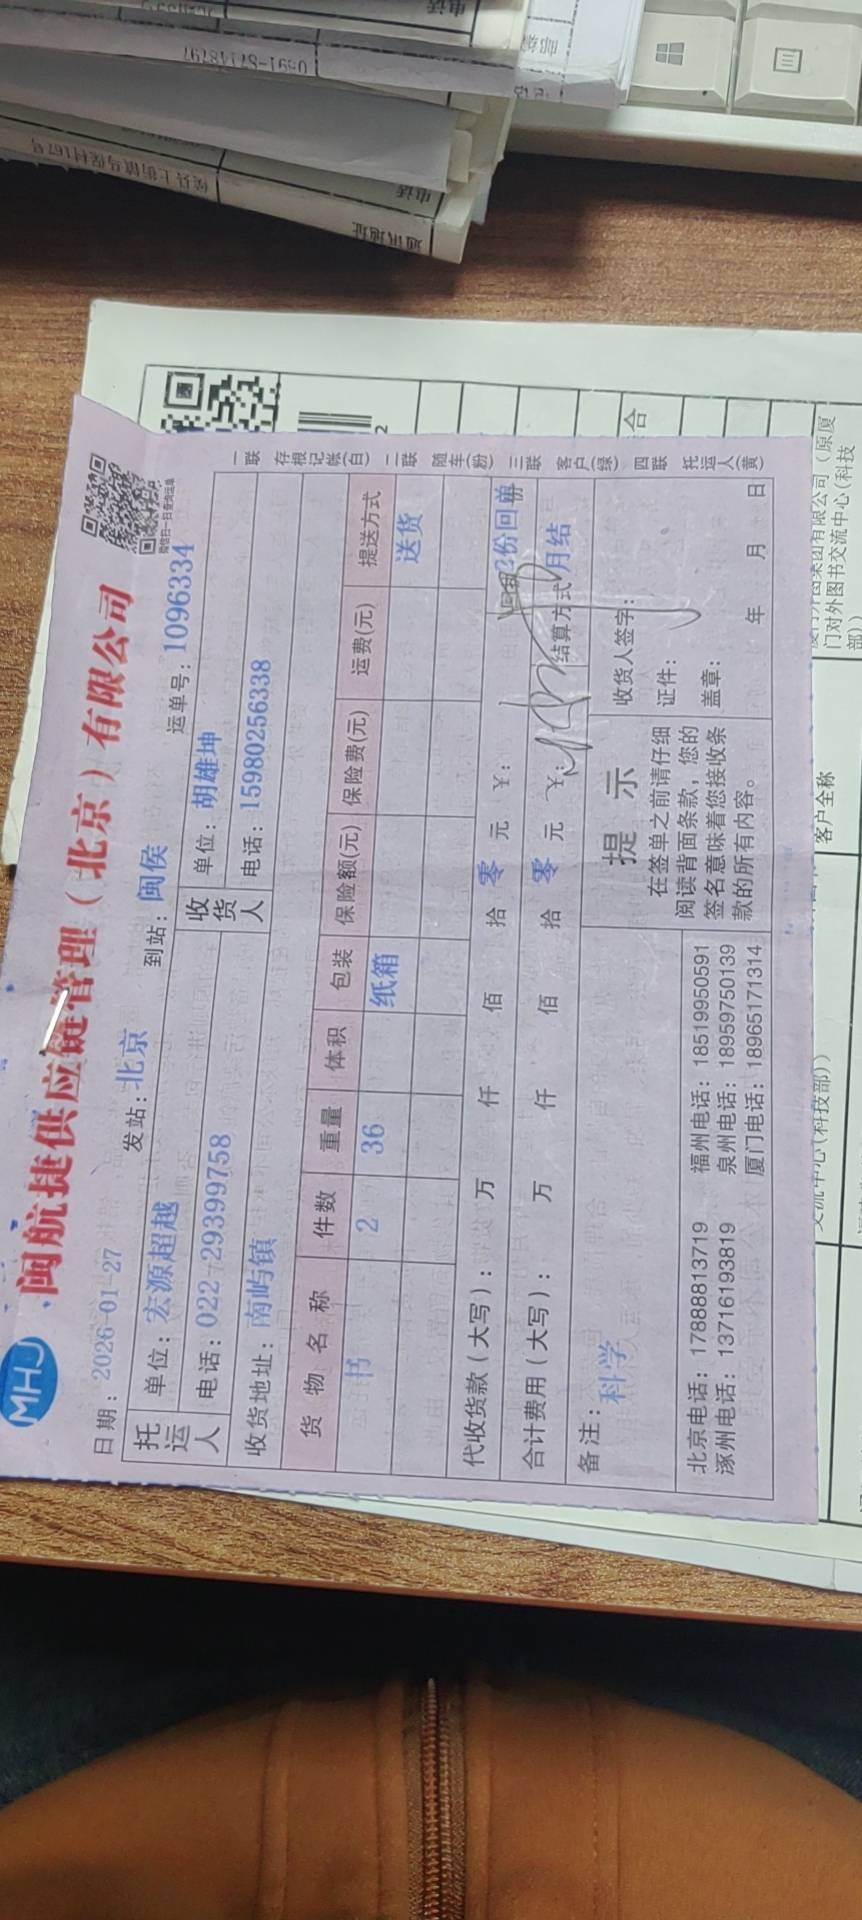 MHJ
闽航捷供应链管理（北京）有限公司
微信扫一扫查询运单
日期：2026-01-27 发站：北京 到站：闽侯 运单号：1096334
托运人 单位：宏源超越 收货人 单位：胡雄坤
电话：022-29399758 电话：15980256338
收货地址：南屿镇
货物名称 件数 重量 体积 包装 保险额(元) 保险费(元) 运费(元) 提送方式
书 2 36 纸箱 送货
代收货款（大写）： 万 仟 佰 拾 零 元 ￥： 2份回单
合计费用（大写）： 万 仟 佰 拾 零 元 ￥： 结算方式 月结
备注：科学
提示
在签单之前请仔细
阅读背面条款，您的
签名意味着您接收条
款的所有内容。
收货人签字：
证件：
盖章：
年 月 日
北京电话：17888813719 福州电话：18519950591
涿州电话：13716193819 泉州电话：18959750139
厦门电话：18965171314
一联 存根记帐(白) 二联 随车(粉) 三联 客户(绿) 四联 托运人(黄)
客户全称
门对外图书交流中心(科技
部))
交流中心(科技部))
合
0591-87148797
侯县上街镇马保村167号
通讯地址
电话
电话